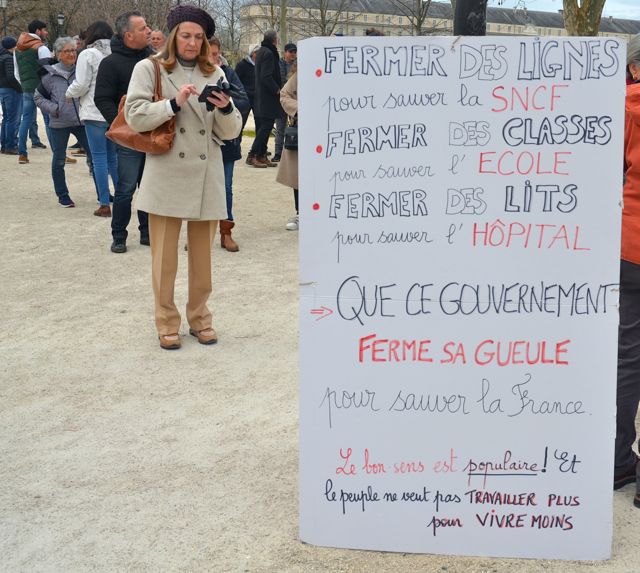 • FERMER DES LIGNES
pour sauver la SNCF
• FERMER DES CLASSES
pour sauver l'ECOLE
• FERMER DES LITS
pour sauver l'HÔPITAL
⇒ QUE CE GOUVERNEMENT
FERME SA GUEULE
pour sauver la France.
Le bon sens est populaire! Et
le peuple ne veut pas TRAVAILLER PLUS
pour VIVRE MOINS